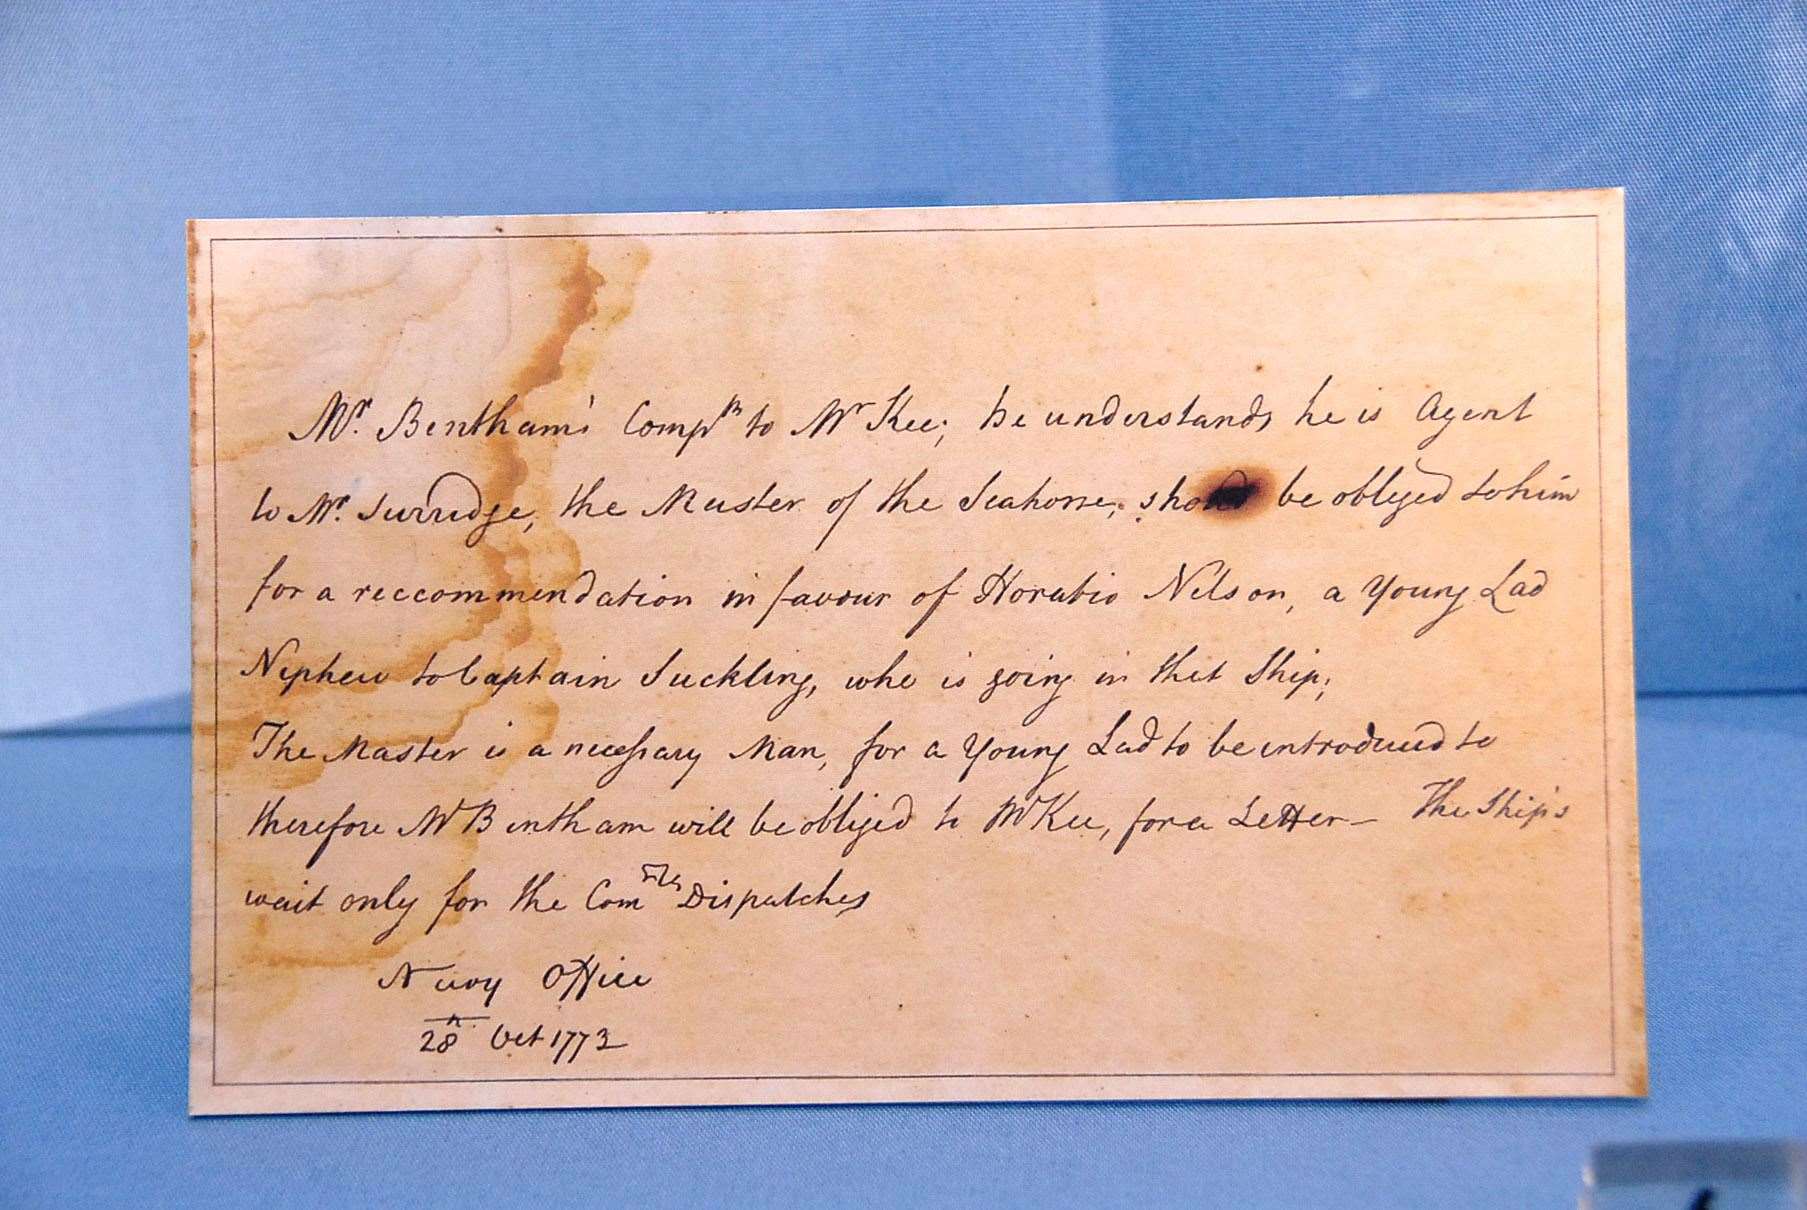 Mr. Bentham's Compts to Mr Kee; he understands he is Agent
to Mr. Surridge, the Master of the Seahorse, should be obliged to him
for a reccommendation in favour of Horatio Nelson, a Young Lad
Nephew to Captain Suckling, who is going in that Ship;
The Master is a necessary Man, for a Young Lad to be introduced to
therefore Mr Bentham will be obliged to Mr Kee, for a Letter – The Ship's
wait only for the Comrs Dispatches
Navy Office
28th Oct 1773